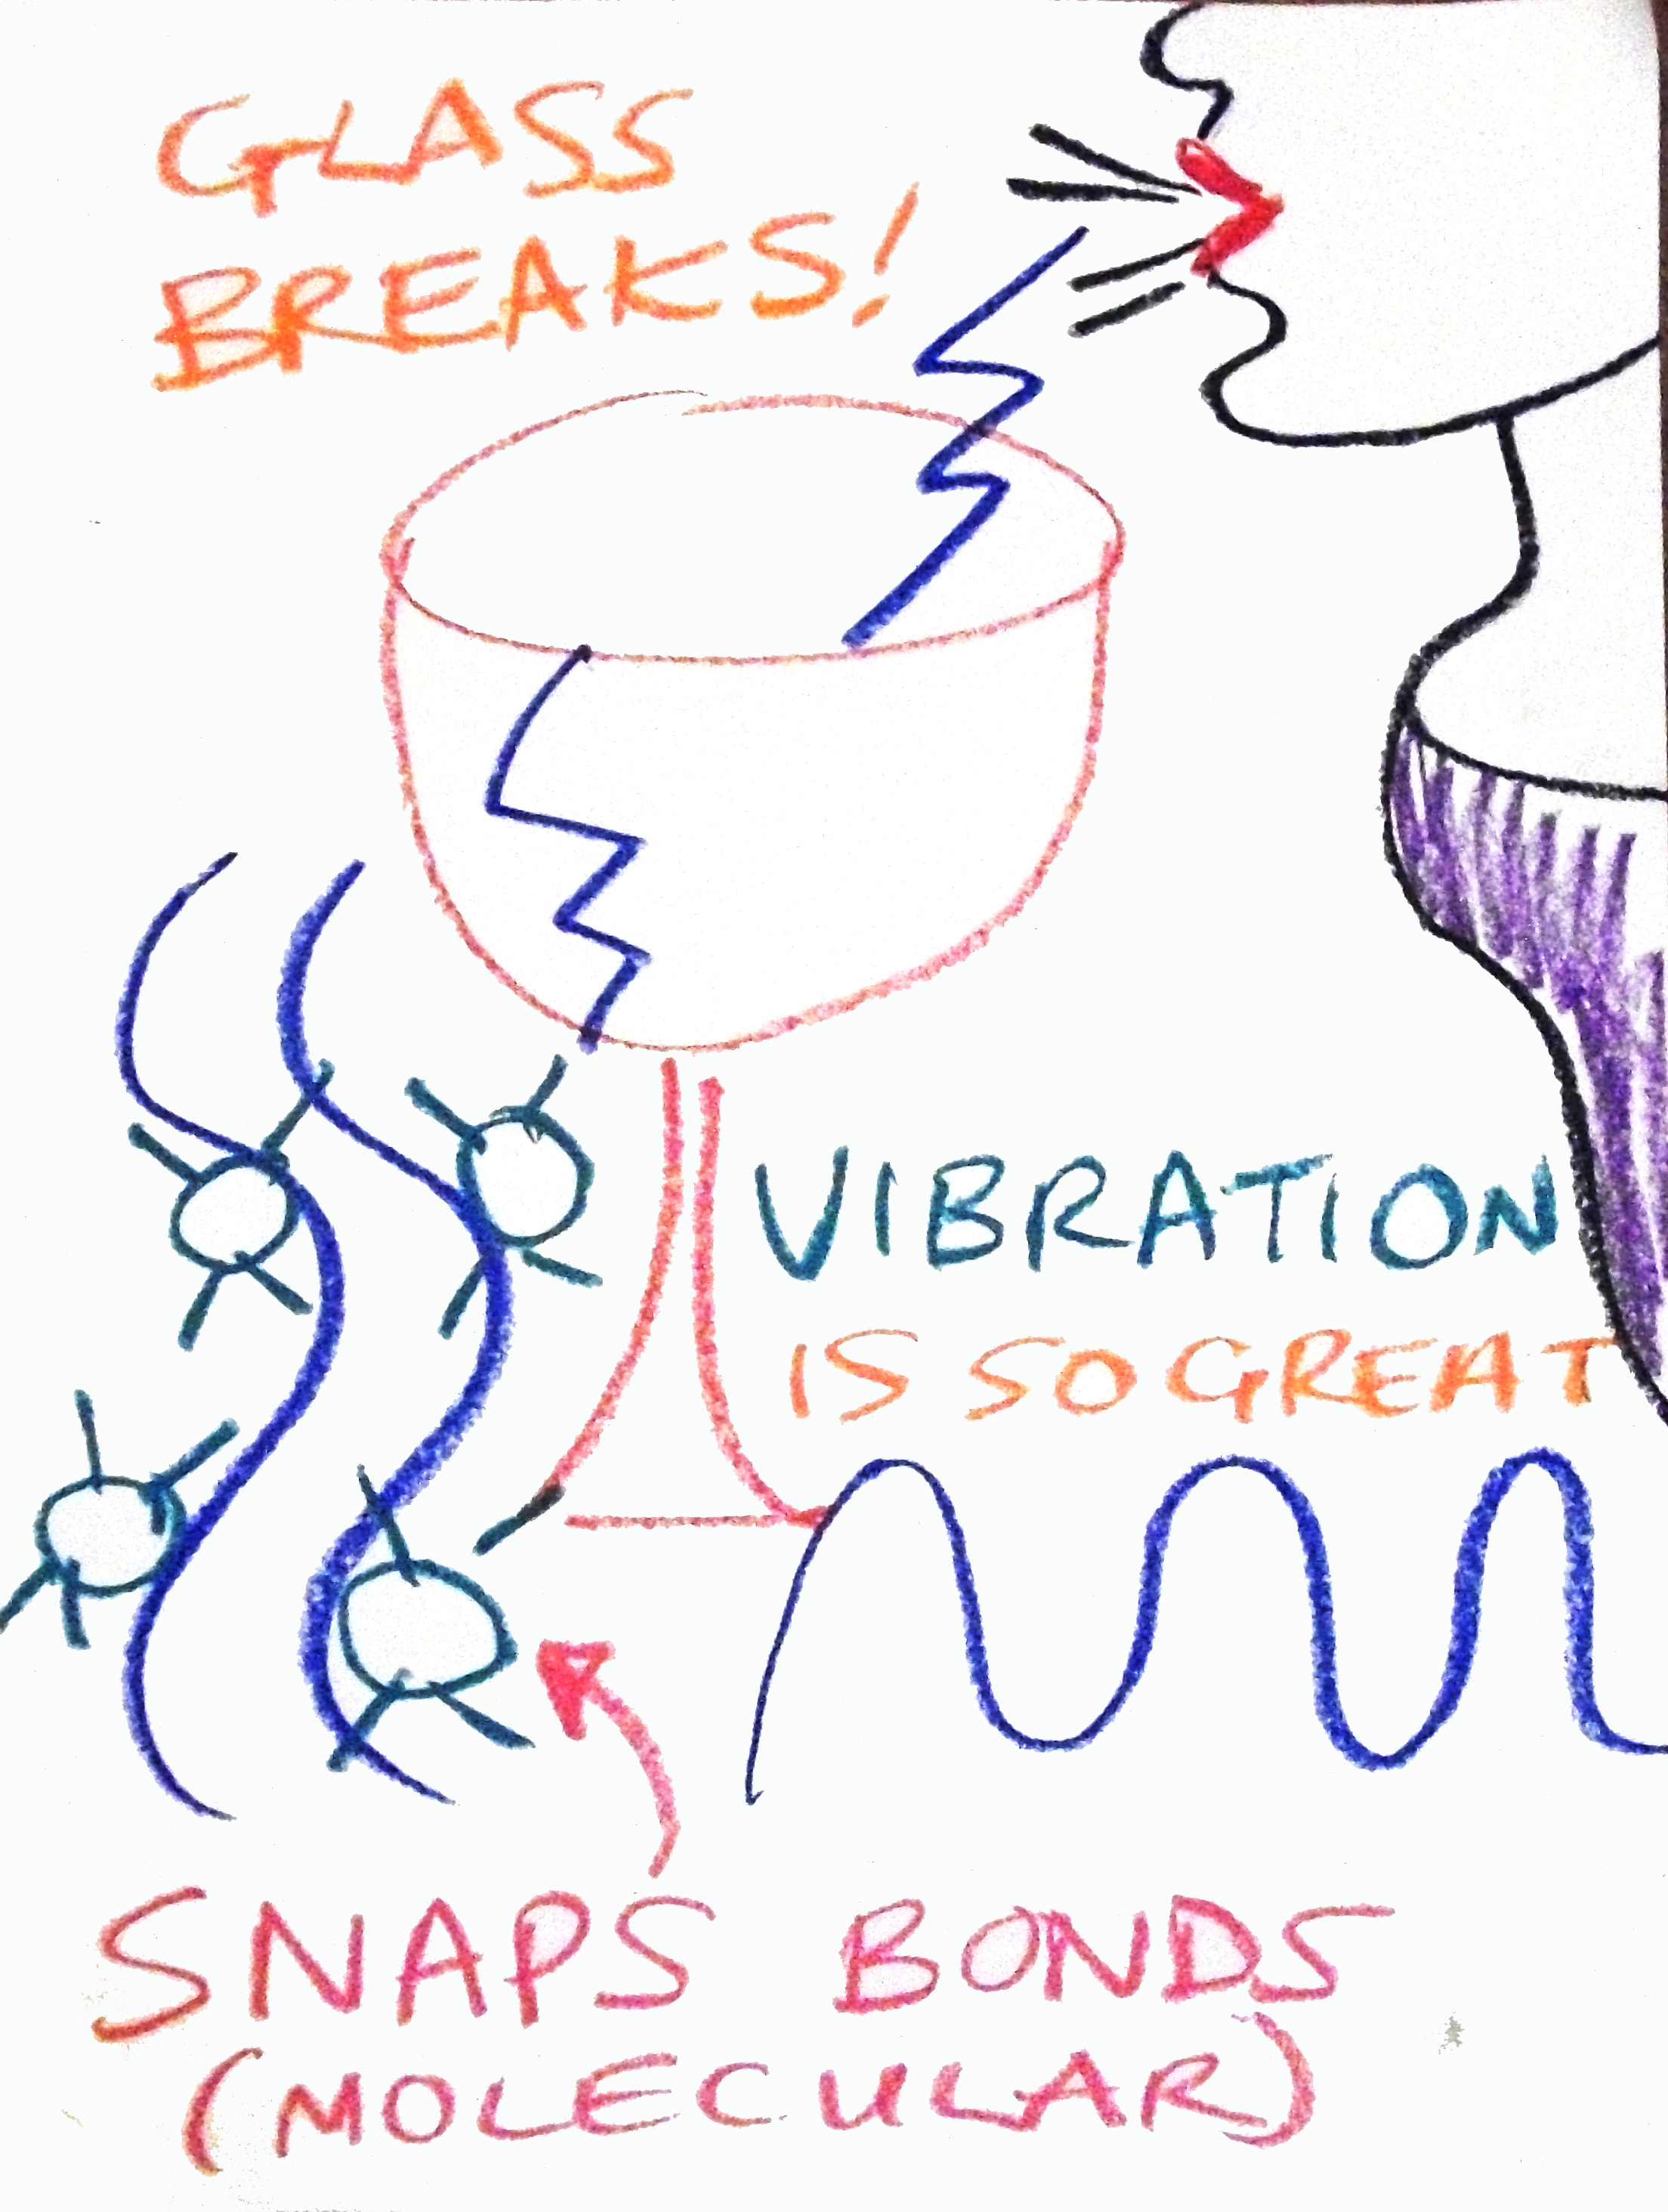 GLASS
BREAKS!
VIBRATION
IS SO GREAT
SNAPS BONDS
(MOLECULAR)